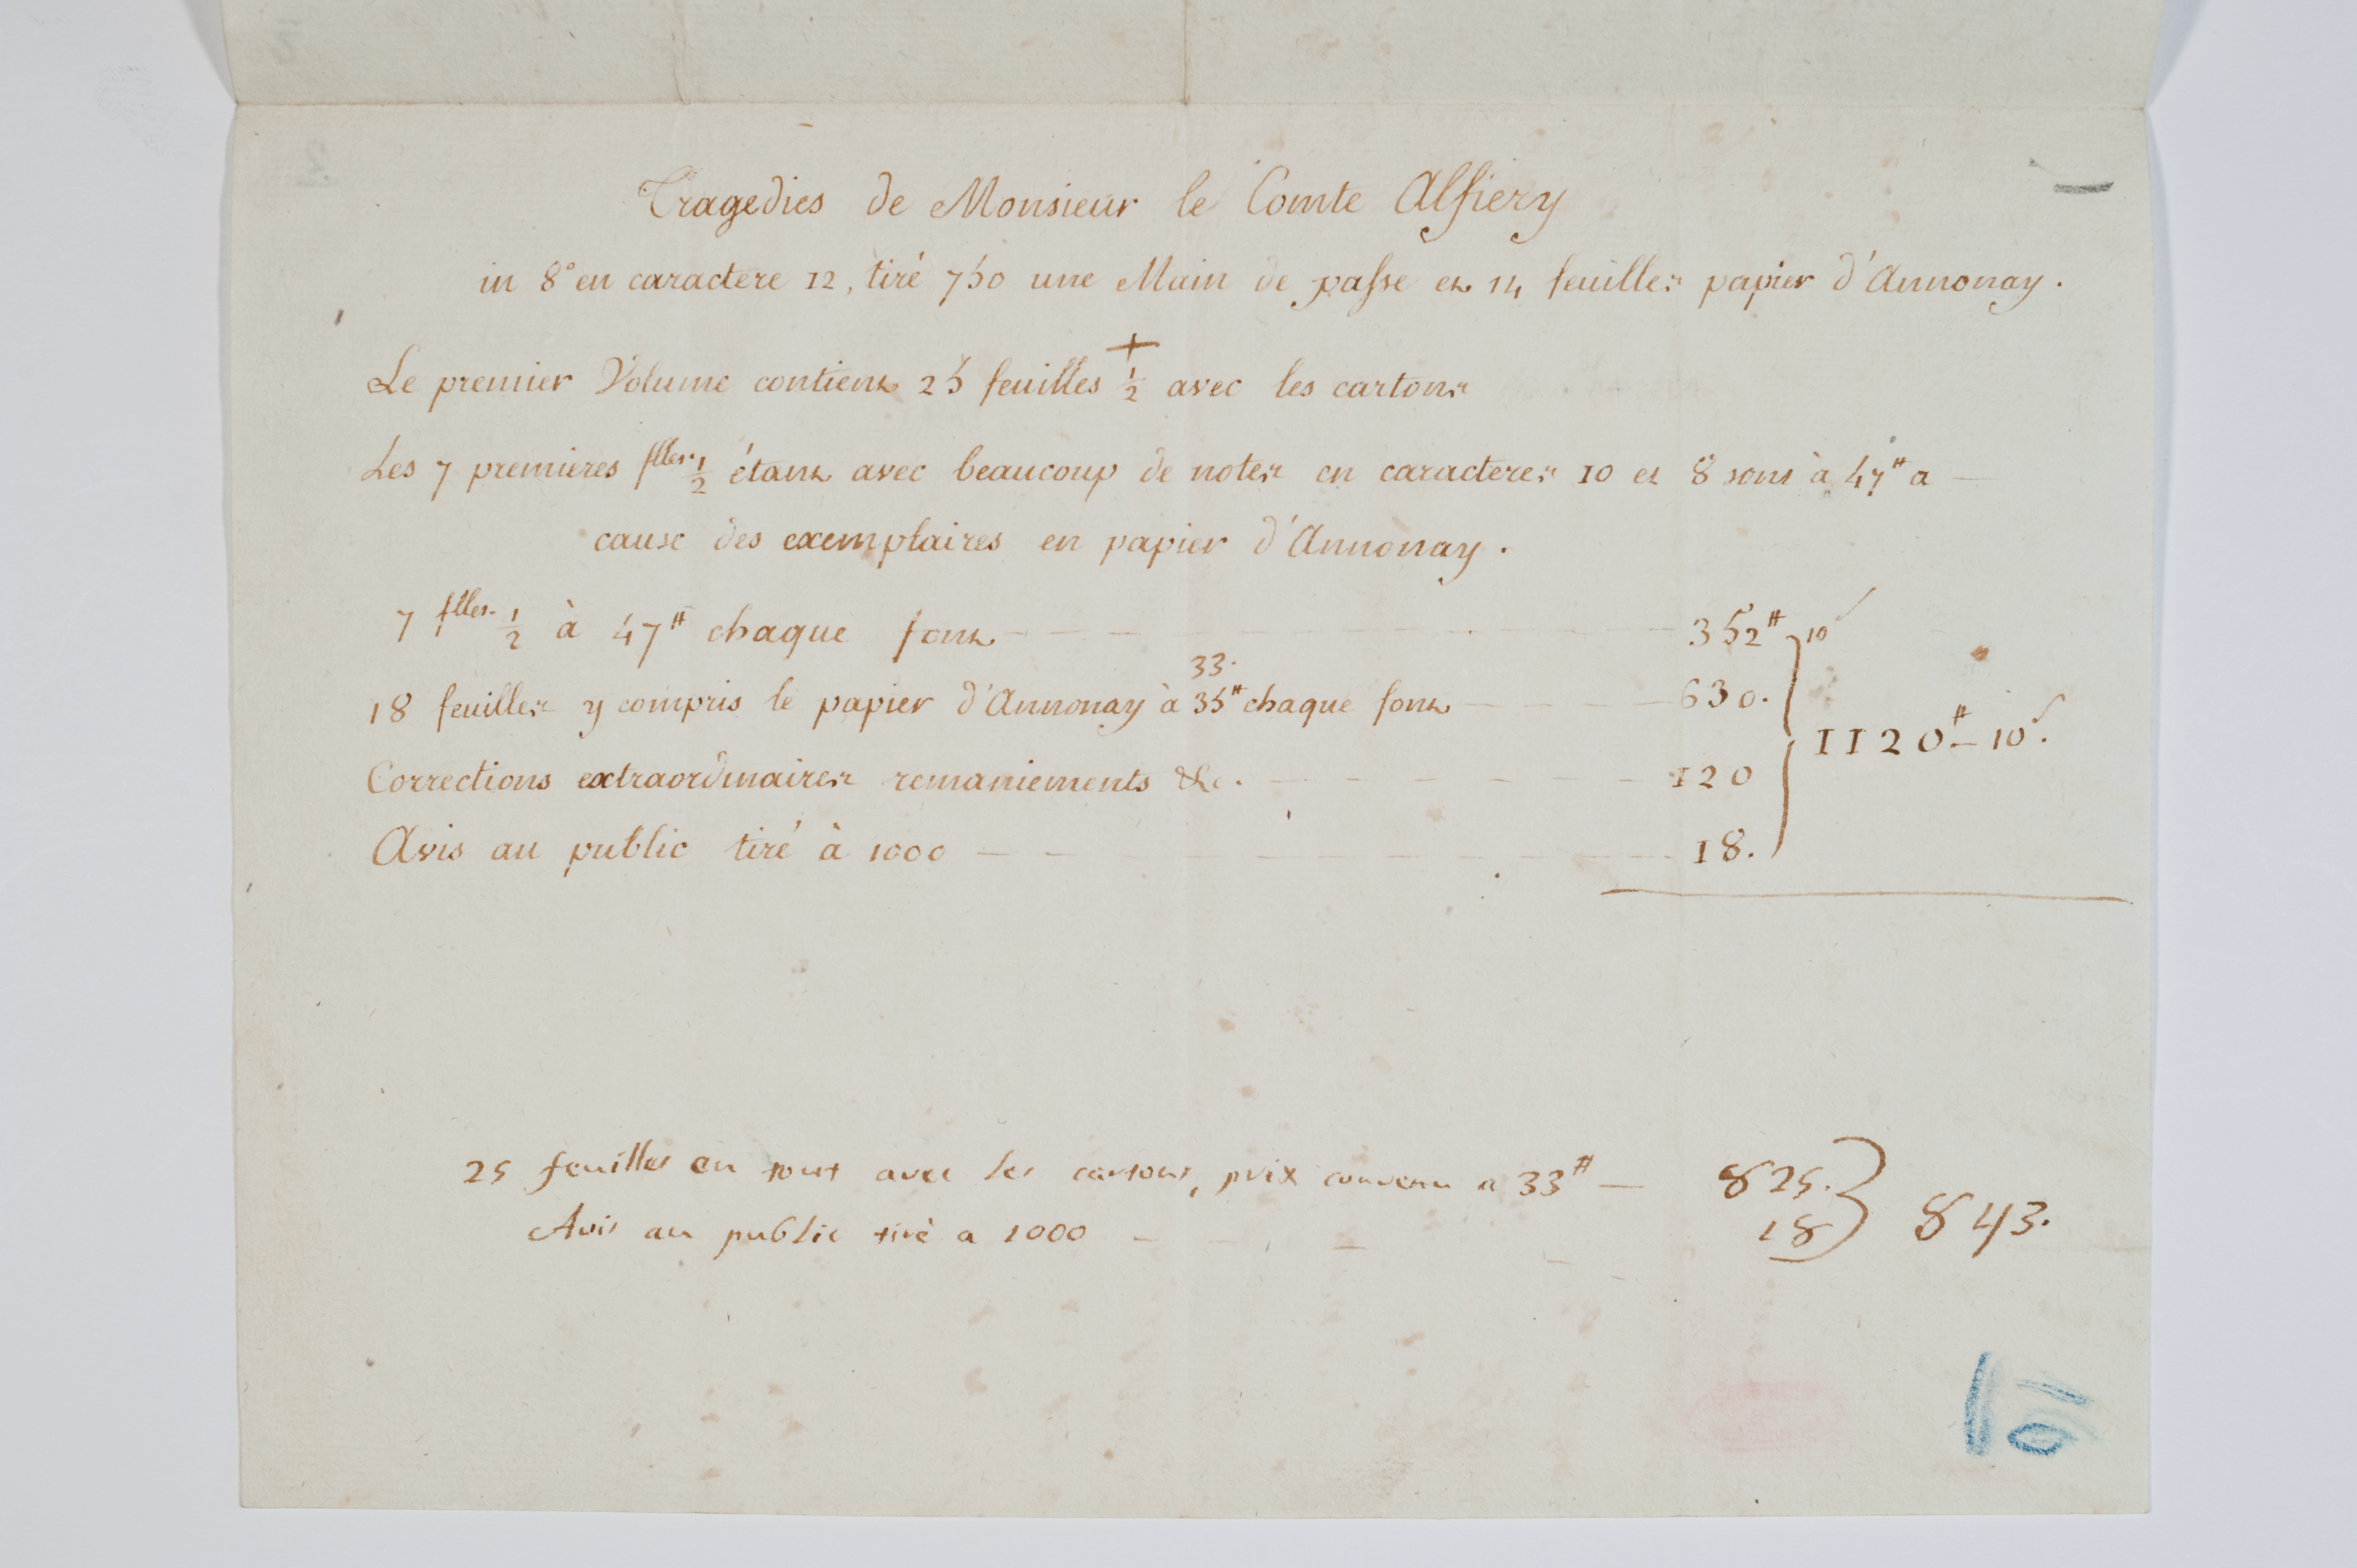 Tragedies de Monsieur le Comte Alfiery
in 8° en caractere 12, tiré 750 une Main de passe et 14 feuilles papier d'Annonay.
+
Le premier Volume contient 25 feuilles 1/2 avec les cartons
Les 7 premieres flles 1/2 étant avec beaucoup de notes en caracteres 10 et 8 sont à 47# a
cause des exemplaires en papier d'Annonay.
7 flles 1/2 à 47# chaque font - - - 352# 10s
33.
18 feuilles y compris le papier d'Annonay à 35# chaque font - - - 630.
1120# - 10s.
Corrections extraordinaires remaniements &c. - - - 120
Avis au public tiré à 1000 - - - 18.
25 feuilles en tout avec les cartons, prix convenu a 33# — 825.
Avis au public tiré a 1000 - - - 18
843.